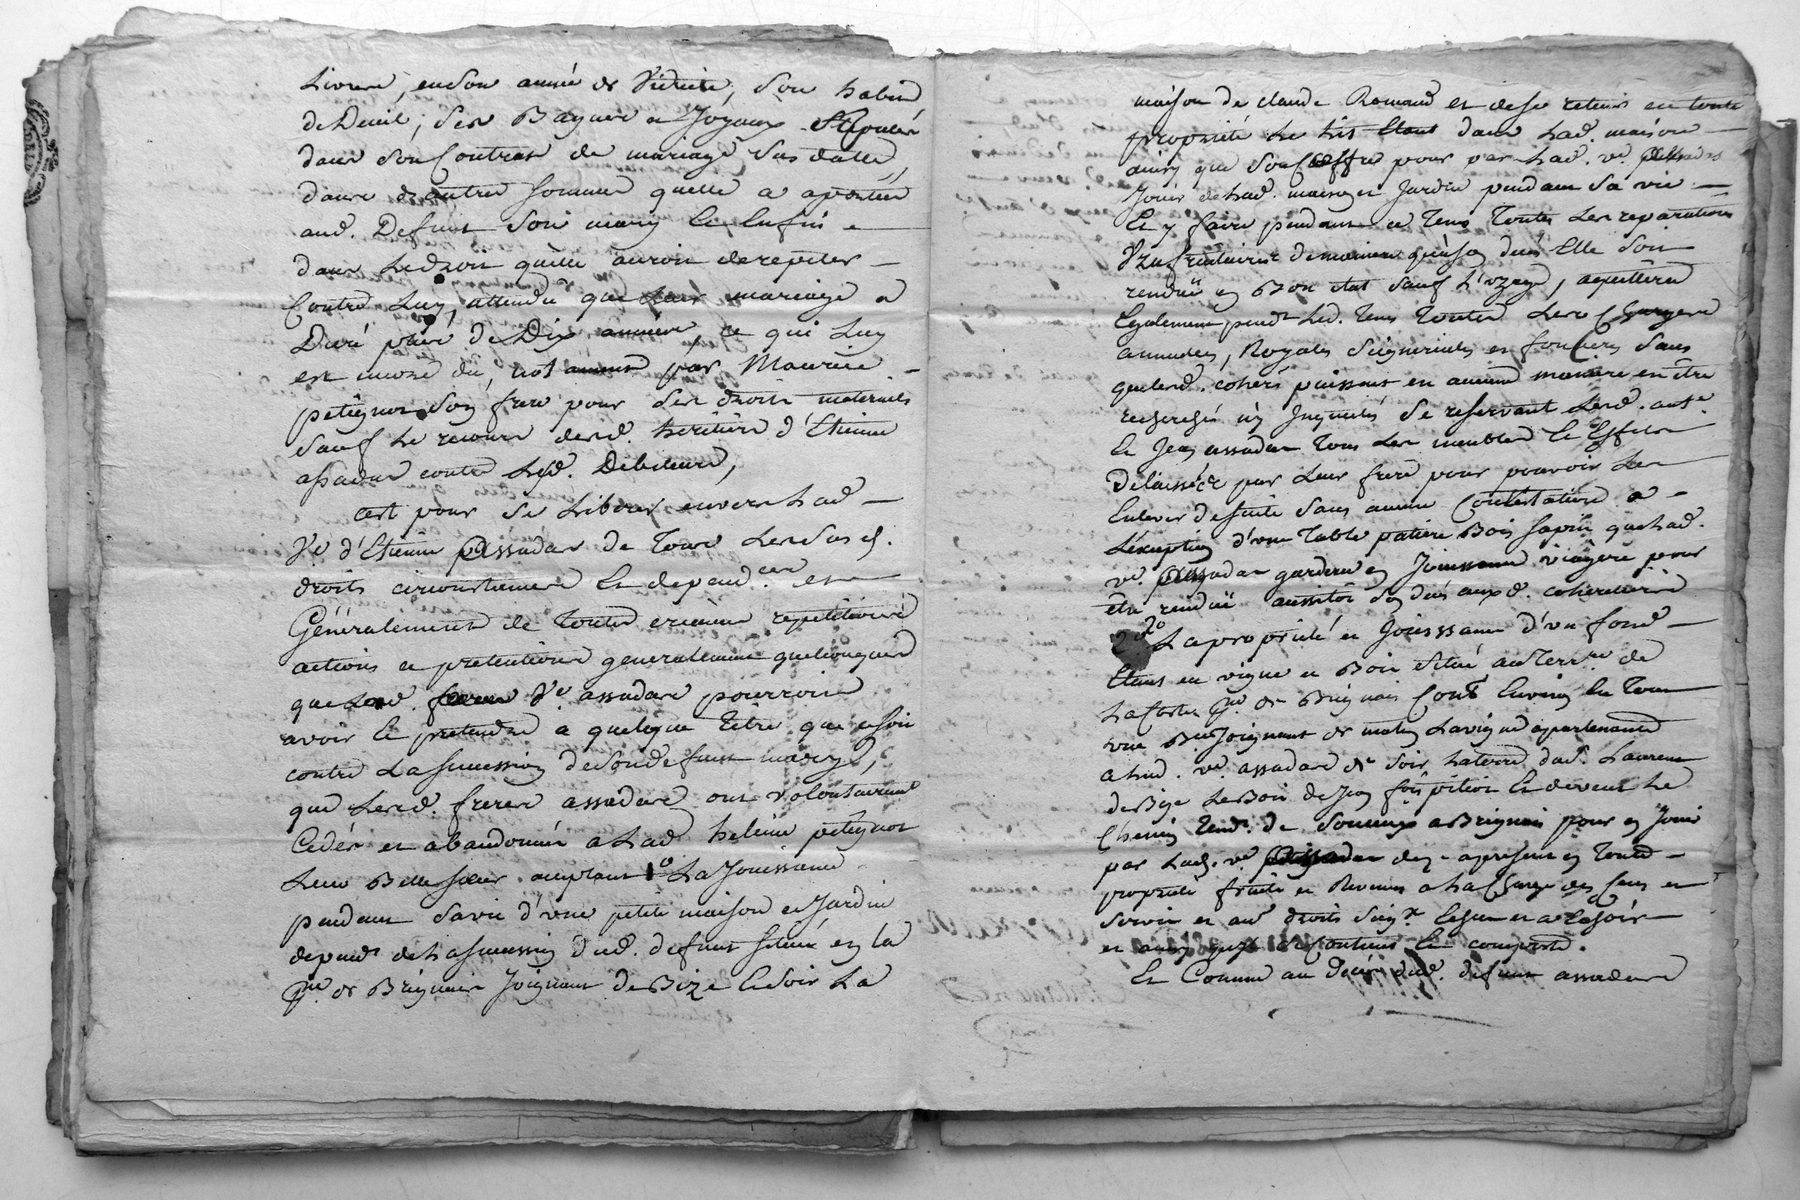 Livres, en son année de Viduité, Son habit
de Deuil, Ses Bagues et Joyaux Stipulés
dans son Contrat de mariage Sus datté,
dans d'autres sommes quelle a aportées
aud. Defunt Son mary Et Enfin
dans Le droit quelle auroit de repeter
Contre Luy, attendu que Leur mariage a
Duré près de Dix années, ce qui Luy
est encore dû, par Maurice
petignot Son frere pour Ses droits maternels
Sauf Le recours desd. heritiers d'Etienne
assadar contre Lesd. Debiteurs,
C'est pour Se Liberer envers Lad.
Ve. d'Etienne assadar de Tous Lesd. Sus d.
droits circonstances Et depend.ces et
Généralement de Toutes repetitions
actions et pretentions generalement quelconques
que Lad. Ve. assadar pourroit
avoir Et pretendre a quelque Titre que ce Soit
contre La Succession de Son defunt mary,
que Lesd. freres assadar ont volontairement
Cedés et abandonnés a Lad. heleine petignot
Leur Belle Sœur 1o. La Jouissance
pendant Sa vie d'une petite maison et Jardin
depend. de La Succession dud. defunt Située en la
de Brignais Joignant de Bize Le Soir La
maison de claude Romand et de Se retenir en toute
propriété Le Lit Etant dans Lad. maison
ainsy que Son Coffre pour par Lad. ve.
Jouir de Lad. maison et Jardin pendant Sa vie
Et y faire pendant ce Tems Toutes Les reparations
Usufruitieres de maniere qu'a Son décès Elle Soit
rendüe en Bon etat Sauf L'uzage, aquittera
Egalement pend. Led. Tems Toutes Les Charges
annuelles, Royales Seigneuriales et foncieres Sans
que Lesd. coheri. puissent en aucune maniere en être
recherchés ny Inquietés Se reservant Lesd.
Et Jean assadar Tous Les meubles Et Effets
Delaissés par Leur frere pour pouvoir Les
Enlever de Suite Sans aucune Contestation a
L'exception d'une Table patiere Bois Sapin que Lad.
ve. assadar gardera en Jouissance viagere pour
être rendüe aussitot Son décès auxd. coheritiers
2o. La propriété et Jouissance d'un fond
Etant en vigne et Bois Situé au Terr.re de
La de Brignais Cont. Environ En Tout
une Joignant de matin La vigne apartenante
a Lad. ve. assadar de Soir La terre dud. Laurent
de Bize Le Bois de Jean Et de vent Le
Chemin Tend. de Soucieu a Brignais pour en Jouir
par Lad. ve. assadar des a present en Toute
propriété fruits et Revenus a La Charge des Cens et
Servis et aux droits Seig.x
et ainsy que Se Contient Et comporte.
Et Comme au décès dud. defunt assadar